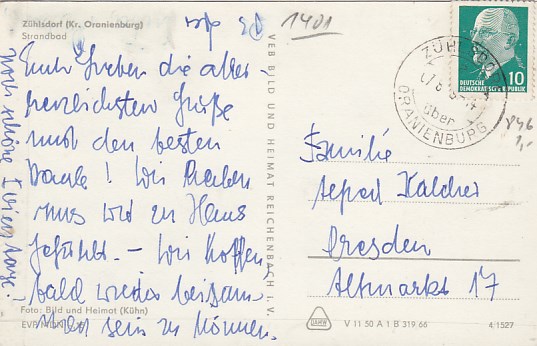 Zühlsdorf (Kr. Oranienburg)
Strandbad
1401
Euch Lieben die aller-
herzlichsten Grüße
und den besten
Dank! Wir haben
uns wie zu Haus
gefühlt. – Wir hoffen,
bald wieder beisam-
men sein zu können.
noch schöne Ferientage.
Foto: Bild und Heimat (Kühn)
VEB BILD UND HEIMAT REICHENBACH I. V.
10
DEUTSCHE
DEMOKRATISCHE REPUBLIK
ZÜHLSDORF
über
ORANIENBURG
Familie
Alfred Kalcher
Dresden
Altmarkt 17
V 11 50 A 1 B 319 66
4/1527